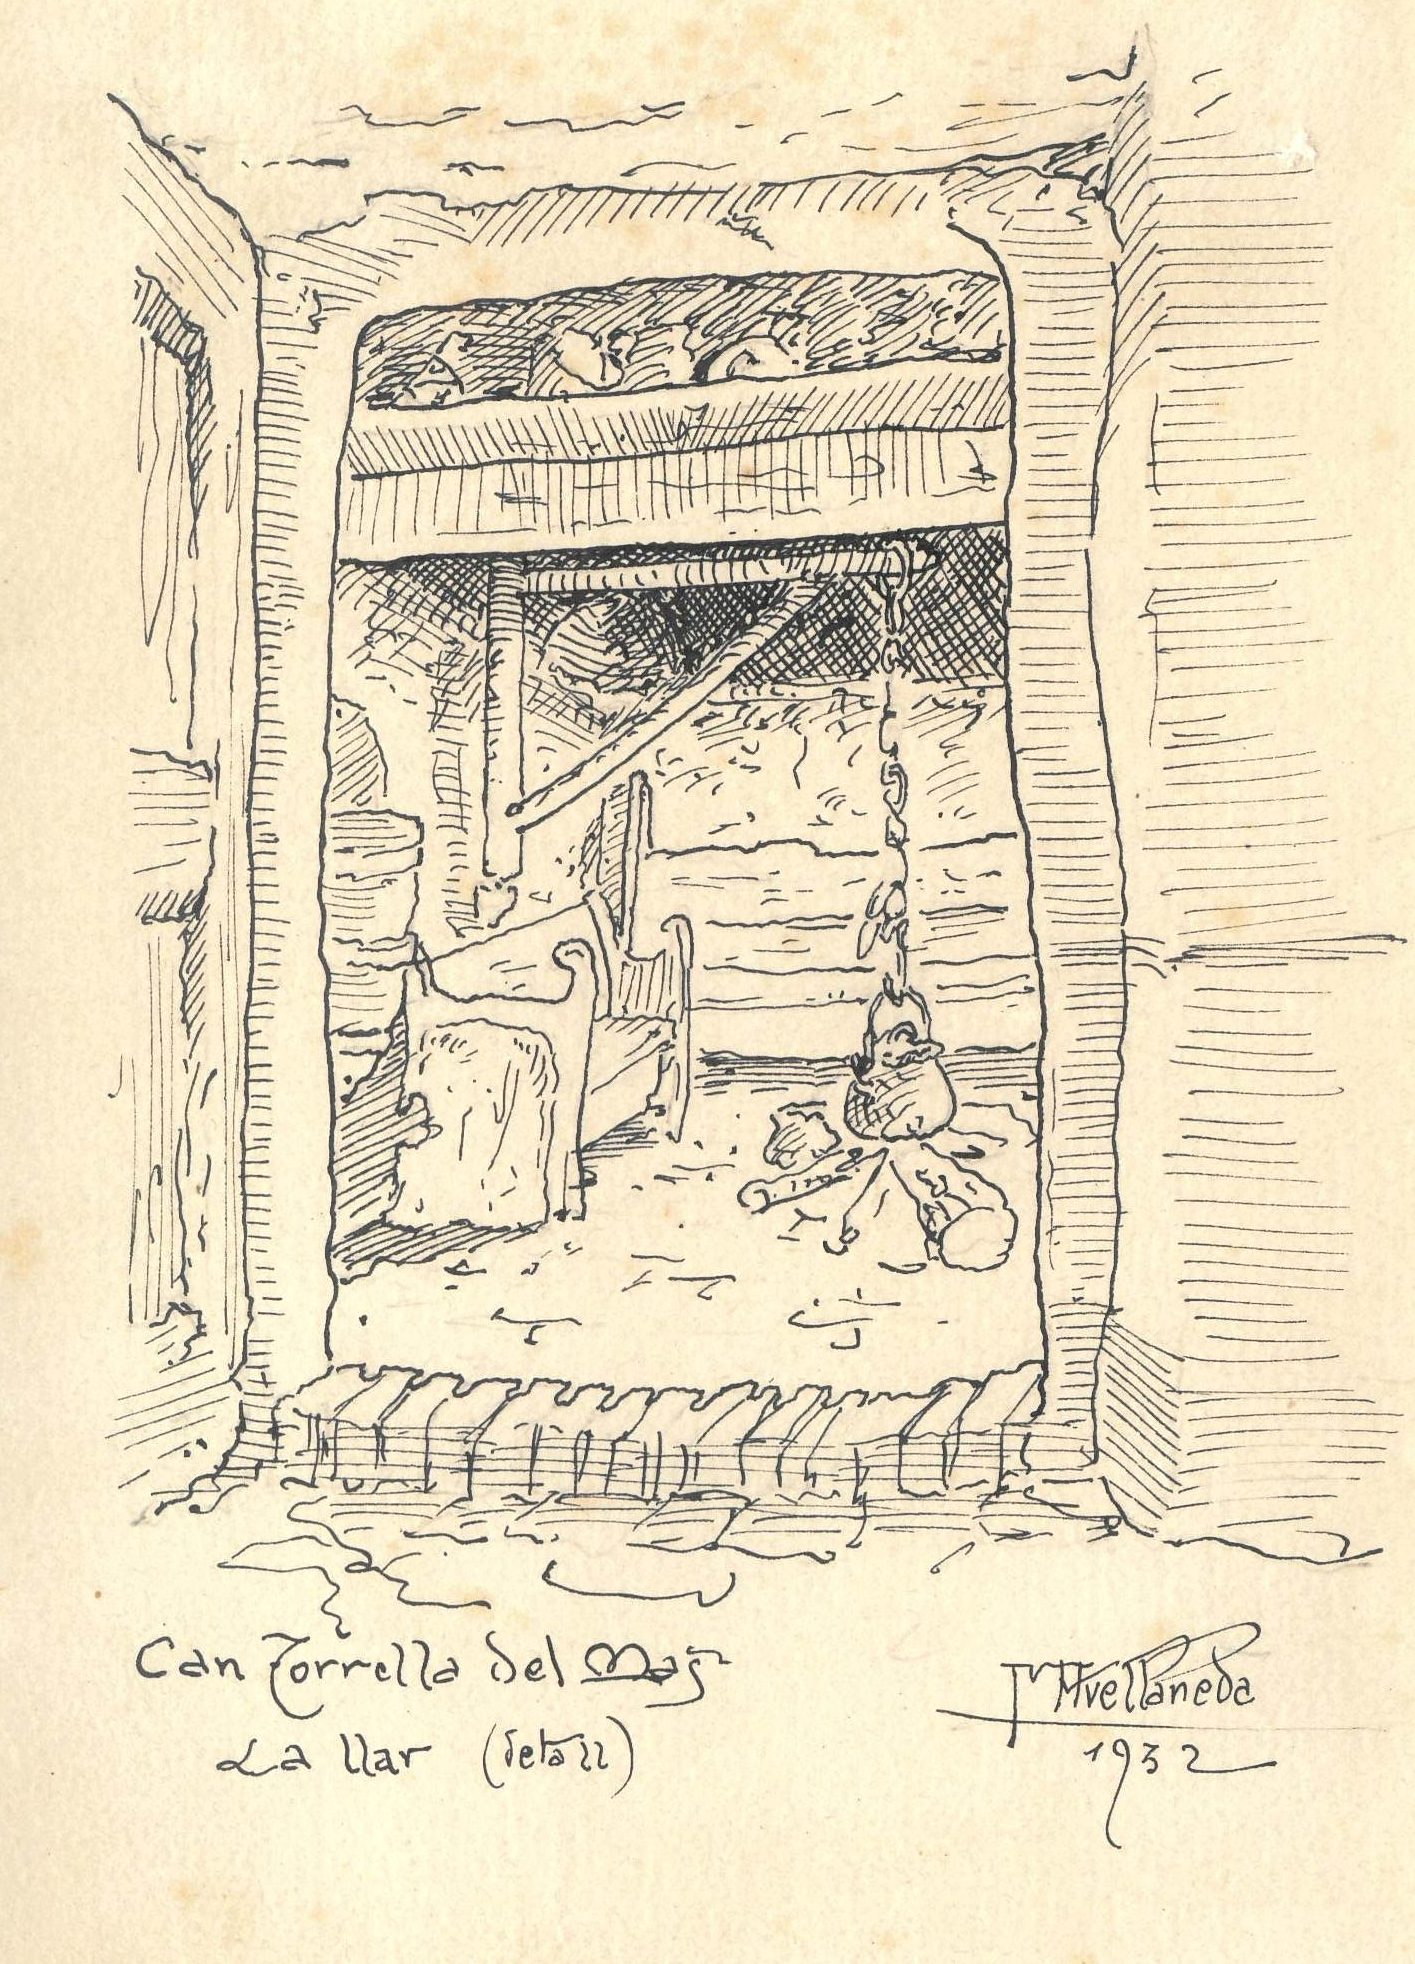 Can Torrella del Mas
La llar (detall)
Avellaneda
1932